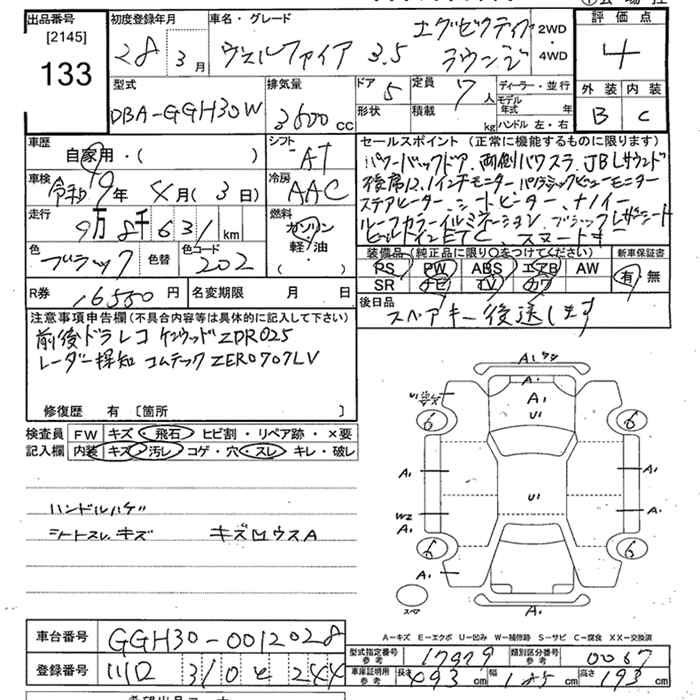 出品番号
[2145]
133
初度登録年月
28年3月
車名・グレード
ヴェルファイア 3.5 エグゼクティブ
ラウンジ
2WD
4WD
評価点
4
外装 内装
B C
型式
DBA-GGH30W
排気量
3500 CC
ドア
5
定員
7人
ディーラー・並行
形状
積載
kg
モデル年式 年
ハンドル 左・右
車歴
自家用・( )
シフト
AT
車検
令和9年4月(3日)
冷房
AAC
走行
9万8千631km
燃料
ガソリン
軽油
( )
色
ブラック
色替
色コード
202
R券
16550円
名変期限 月 日
セールスポイント(正常に機能するものに限ります)
パワーバックドア、両側パワスラ、JBLサウンド
後席12.1インチモニター、パノラミックビューモニター
ステアヒーター、シートヒーター、ナノイー
ルーフカラーイルミネーション、ブラックレザーシート
ビルトインETC、スマートキー
装備品(純正品に限り○をつけてください)
新車保証書
PS PW ABS エアB AW
SR ナビ TV カワ
有 無
後日品
スペアキー後送します
注意事項申告欄(不具合内容等は具体的に記入して下さい)
前後ドラレコ ケンウッドZDR025
レーダー探知 コムテックZERO707LV
修復歴 有 [箇所 ]
検査員
記入欄
FW キズ・飛石・ヒビ割・リペア跡・×要
内装 キズ・汚レ・コゲ・穴・スレ・キレ・破レ
ハンドルハゲ
シートスレ、キズ キズロウスA
A1
A1
A1
U1
U1
6
6
U1
A1
A1
W2
A1
A1
6
6
A1
A1
スペア
A―キズ E―エクボ U―凹み W―補修跡 S―サビ C―腐食 XX―交換済
車台番号
GGH30-0012028
登録番号
川口 310 そ 244
型式指定番号
参考
17979
類別区分番号
参考
0067
車庫証明用
参考
長さ
493cm
幅
185cm
高さ
193cm